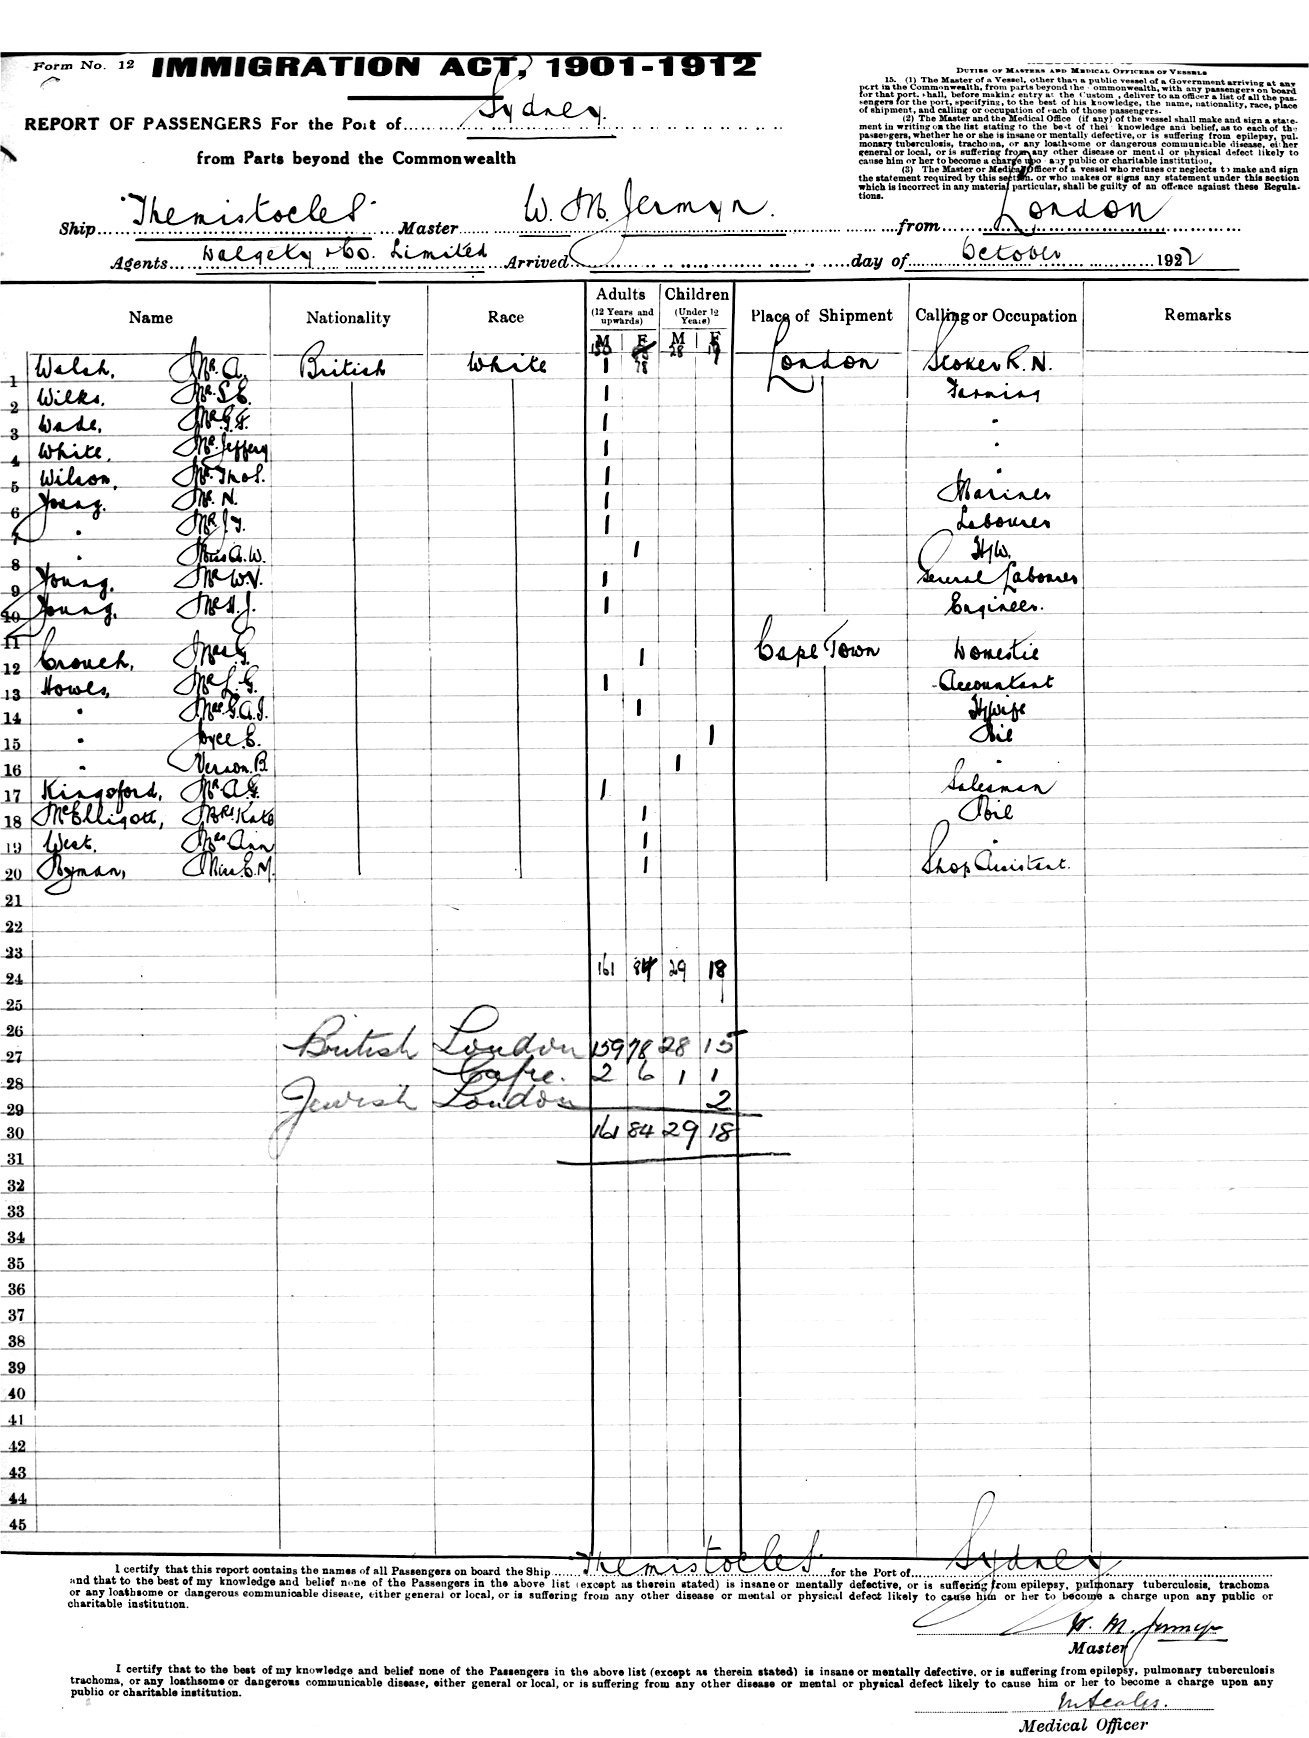 Form No. 12 IMMIGRATION ACT, 1901-1912
REPORT OF PASSENGERS For the Port of Sydney.
from Parts beyond the Commonwealth
DUTIES OF MASTERS AND MEDICAL OFFICERS OF VESSELS
15. (1) The Master of a Vessel, other than a public vessel of a Government arriving at any
port in the Commonwealth, from parts beyond the ommonwealth, with any passengers on board
for that port, shall, before making entry at the Custom , deliver to an officer a list of all the pas-
sengers for the port, specifying, to the best of his knowledge, the name, nationality, race, place
of shipment, and calling or occupation of each of those passengers.
(2) The Master and the Medical Office (if any) of the vessel shall make and sign a state-
ment in writing on the list stating to the best of their knowledge and belief, as to each of the
passengers, whether he or she is insane or mentally defective, or is suffering from epilepsy, pul-
monary tuberculosis, trachoma, or any loathsome or dangerous communicable disease, either
general or local, or is suffering from any other disease or mental or physical defect likely to
cause him or her to become a charge upon any public or charitable institution,
(3) The Master or Medical Officer of a vessel who refuses or neglects to make and sign
the statement required by this section, or who makes or signs any statement under this section
which is incorrect in any material particular, shall be guilty of an offence against these Regula-
tions.
Ship "Themistocles" Master W. M. Jermyn. from London
Agents Dalgety & Co. Limited Arrived day of October 1922
Name Nationality Race Adults (12 Years and upwards) M F Children (Under 12 Years) M F Place of Shipment Calling or Occupation Remarks
78 28
1 Walsh, Mr. A. British White 1 London Stoker R.N.
2 Wilks, Mr. S.E. 1 Farming
3 Wade, Mr. G.F. 1 "
4 White, Mr. Jeffery 1 "
5 Wilson, Mr. Thos. 1 "
6 Young. Mr. N. 1 Mariner
7 " Mr. J.T. 1 Labourer
8 " Miss A.W. 1 H/W.
9 Young, Mr. W.V. 1 General Labourer
10 Young, Mr. H.J. 1 Engineer.
11
12 Crouch, Mrs G. 1 Cape Town Domestic
13 Howes, Mr. L.G. 1 Accountant
14 " Mrs. G.A.I. 1 H/Wife
15 " Joyce E. 1 Nil
16 " Vernon. B. 1 "
17 Kingsford, Mr. A.G. 1 Salesman
18 McElligott, Mrs Kate 1 Nil
19 West, Mrs Ann 1 "
20 Ryman, Miss E.M. 1 Shop Assistant.
21
22
23
24 161 84 29 18
25
26
27 British London 159 78 28 15
28 Cape. 2 6 1 1
29 Jewish London 2
30 161 84 29 18
31
32
33
34
35
36
37
38
39
40
41
42
43
44
45
I certify that this report contains the names of all Passengers on board the Ship Themistocles for the Port of Sydney
and that to the best of my knowledge and belief none of the Passengers in the above list (except as therein stated) is insane or mentally defective, or is suffering from epilepsy, pulmonary tuberculosis, trachoma
or any loathsome or dangerous communicable disease, either general or local, or is suffering from any other disease or mental or physical defect likely to cause him or her to become a charge upon any public or
charitable institution.
W. M. Jermyn
Master
I certify that to the best of my knowledge and belief none of the Passengers in the above list (except as therein stated) is insane or mentally defective, or is suffering from epilepsy, pulmonary tuberculosis
trachoma, or any loathsome or dangerous communicable disease, either general or local, or is suffering from any other disease or mental or physical defect likely to cause him or her to become a charge upon any
public or charitable institution.
Medical Officer